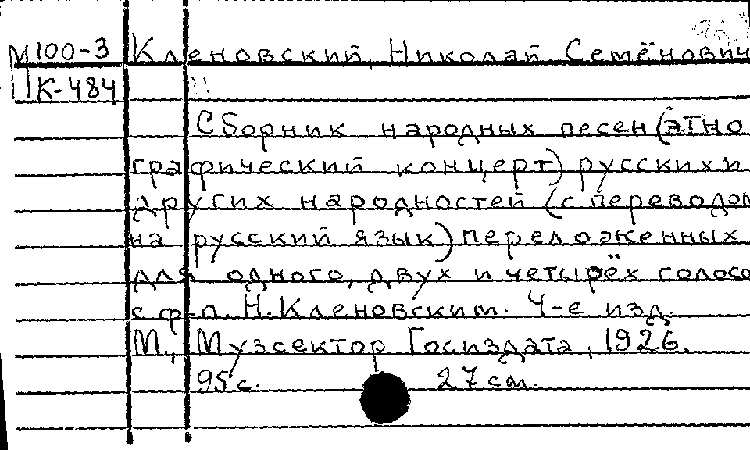 М100-3 Кленовский, Николай Семёнович
К-484
Сборник народных песен (этно
графический концерт) русских и
других народностей (с переводом
на русский язык) переложенных
для одного, двух и четырёх голосо
с ф-п. Н. Кленовским. 4-е изд.
М., Музсектор Госиздата, 1926.
95 с. 27 см.